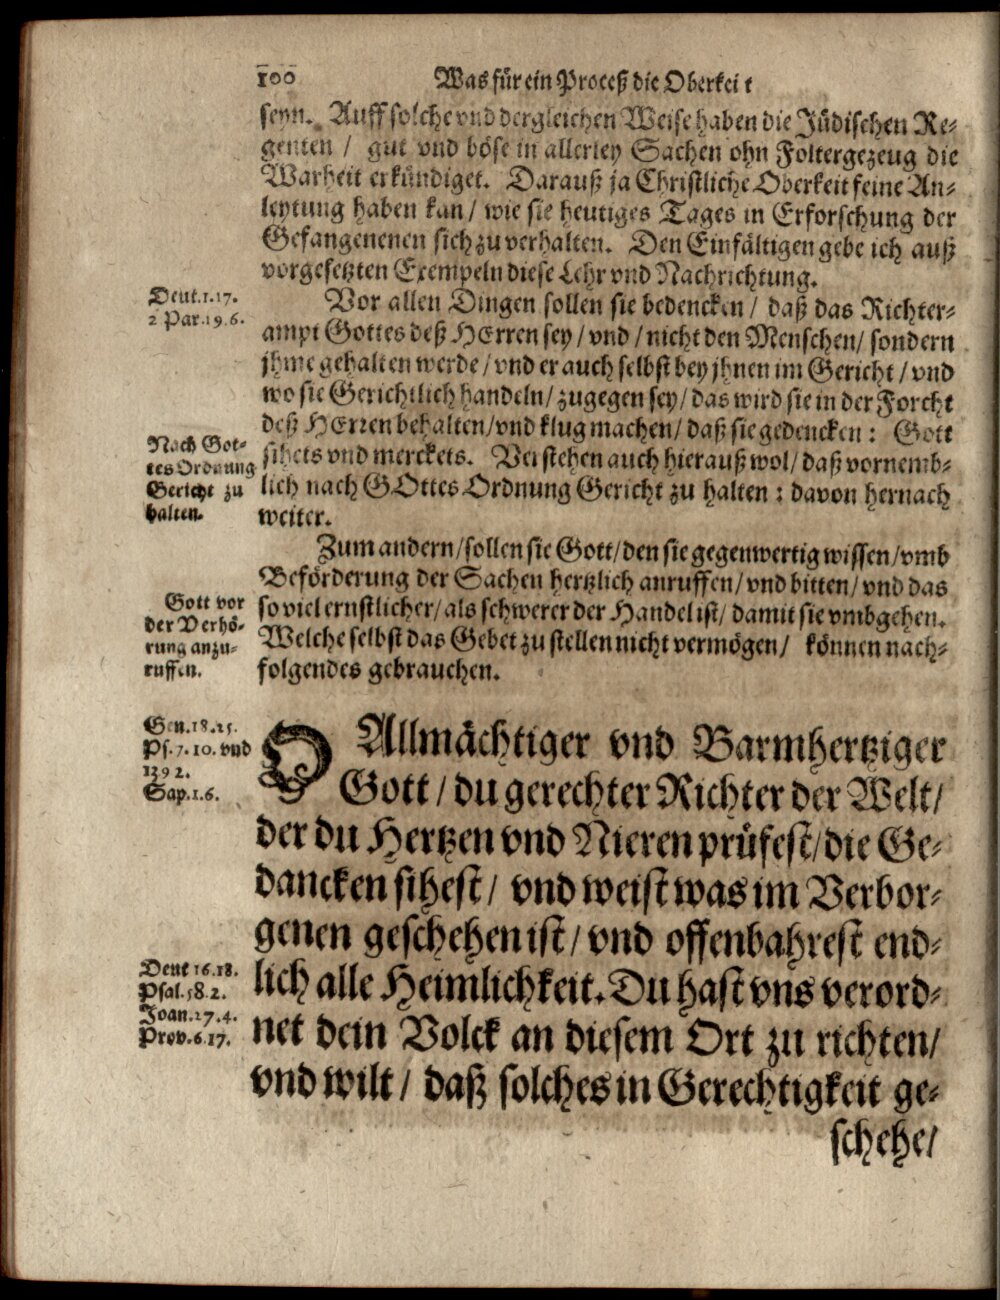 100 Was für ein Proceß die Oberkeit
seyn. Auff solche vnd dergleichen Weise haben die Jüdischen Re-
genten / gut vnd böse in allerley Sachen ohn Foltergezeug die
Warheit erkündiget. Darauß ja Christliche Oberkeit feine An-
leytung haben kan / wie sie heutiges Tages in Erforschung der
Gefangenenen sich zu verhalten. Den Einfältigen gebe ich auß
vorgesetzten Exempeln diese Lehr vnd Nachrichtung.
Deut.1.17.
2 Par.19.6.
Vor allen Dingen sollen sie bedencken / daß das Richter-
ampt Gottes deß HErren sey / vnd / nicht den Menschen / sondern
jhme gehalten werde / vnd er auch selbst bey jhnen im Gericht / vnd
wo sie Gerichtlich handeln / zugegen sey / das wird sie in der Forcht
deß HErren behalten / vnd klug machen / daß sie gedencken: Gott
sihets vnd merckets. Verstehen auch hierauß wol / daß vornemb-
lich nach GOttes Ordnung Gericht zu halten: davon hernach
weiter.
Nach Got-
tes Ordnung
Gericht zu
halten.
Zum andern / sollen sie Gott / den sie gegenwertig wissen / vmb
Beförderung der Sachen hertzlich anruffen / vnd bitten / vnd das
so viel ernstlicher / als schwerer der Handel ist / damit sie vmbgehen.
Welche selbst das Gebet zu stellen nicht vermögen / können nach-
folgendes gebrauchen.
Gott vor
der Verhö-
rung anzu-
ruffen.
Gen.18.25.
Ps.7.10. vnd
1392.
Sap.1.6.
O Allmächtiger vnd Barmhertziger
Gott / du gerechter Richter der Welt /
der du Hertzen vnd Nieren prüfest / die Ge-
dancken sihest / vnd weist was im Verbor-
genen geschehen ist / vnd offenbahrest end-
lich alle Heimlichkeit. Du hast vns verord-
net dein Volck an diesem Ort zu richten /
vnd wilt / daß solches in Gerechtigkeit ge-
Deut 16.18.
Psal.58.2.
Joan.27.4.
Prov.6.17.
schehe /